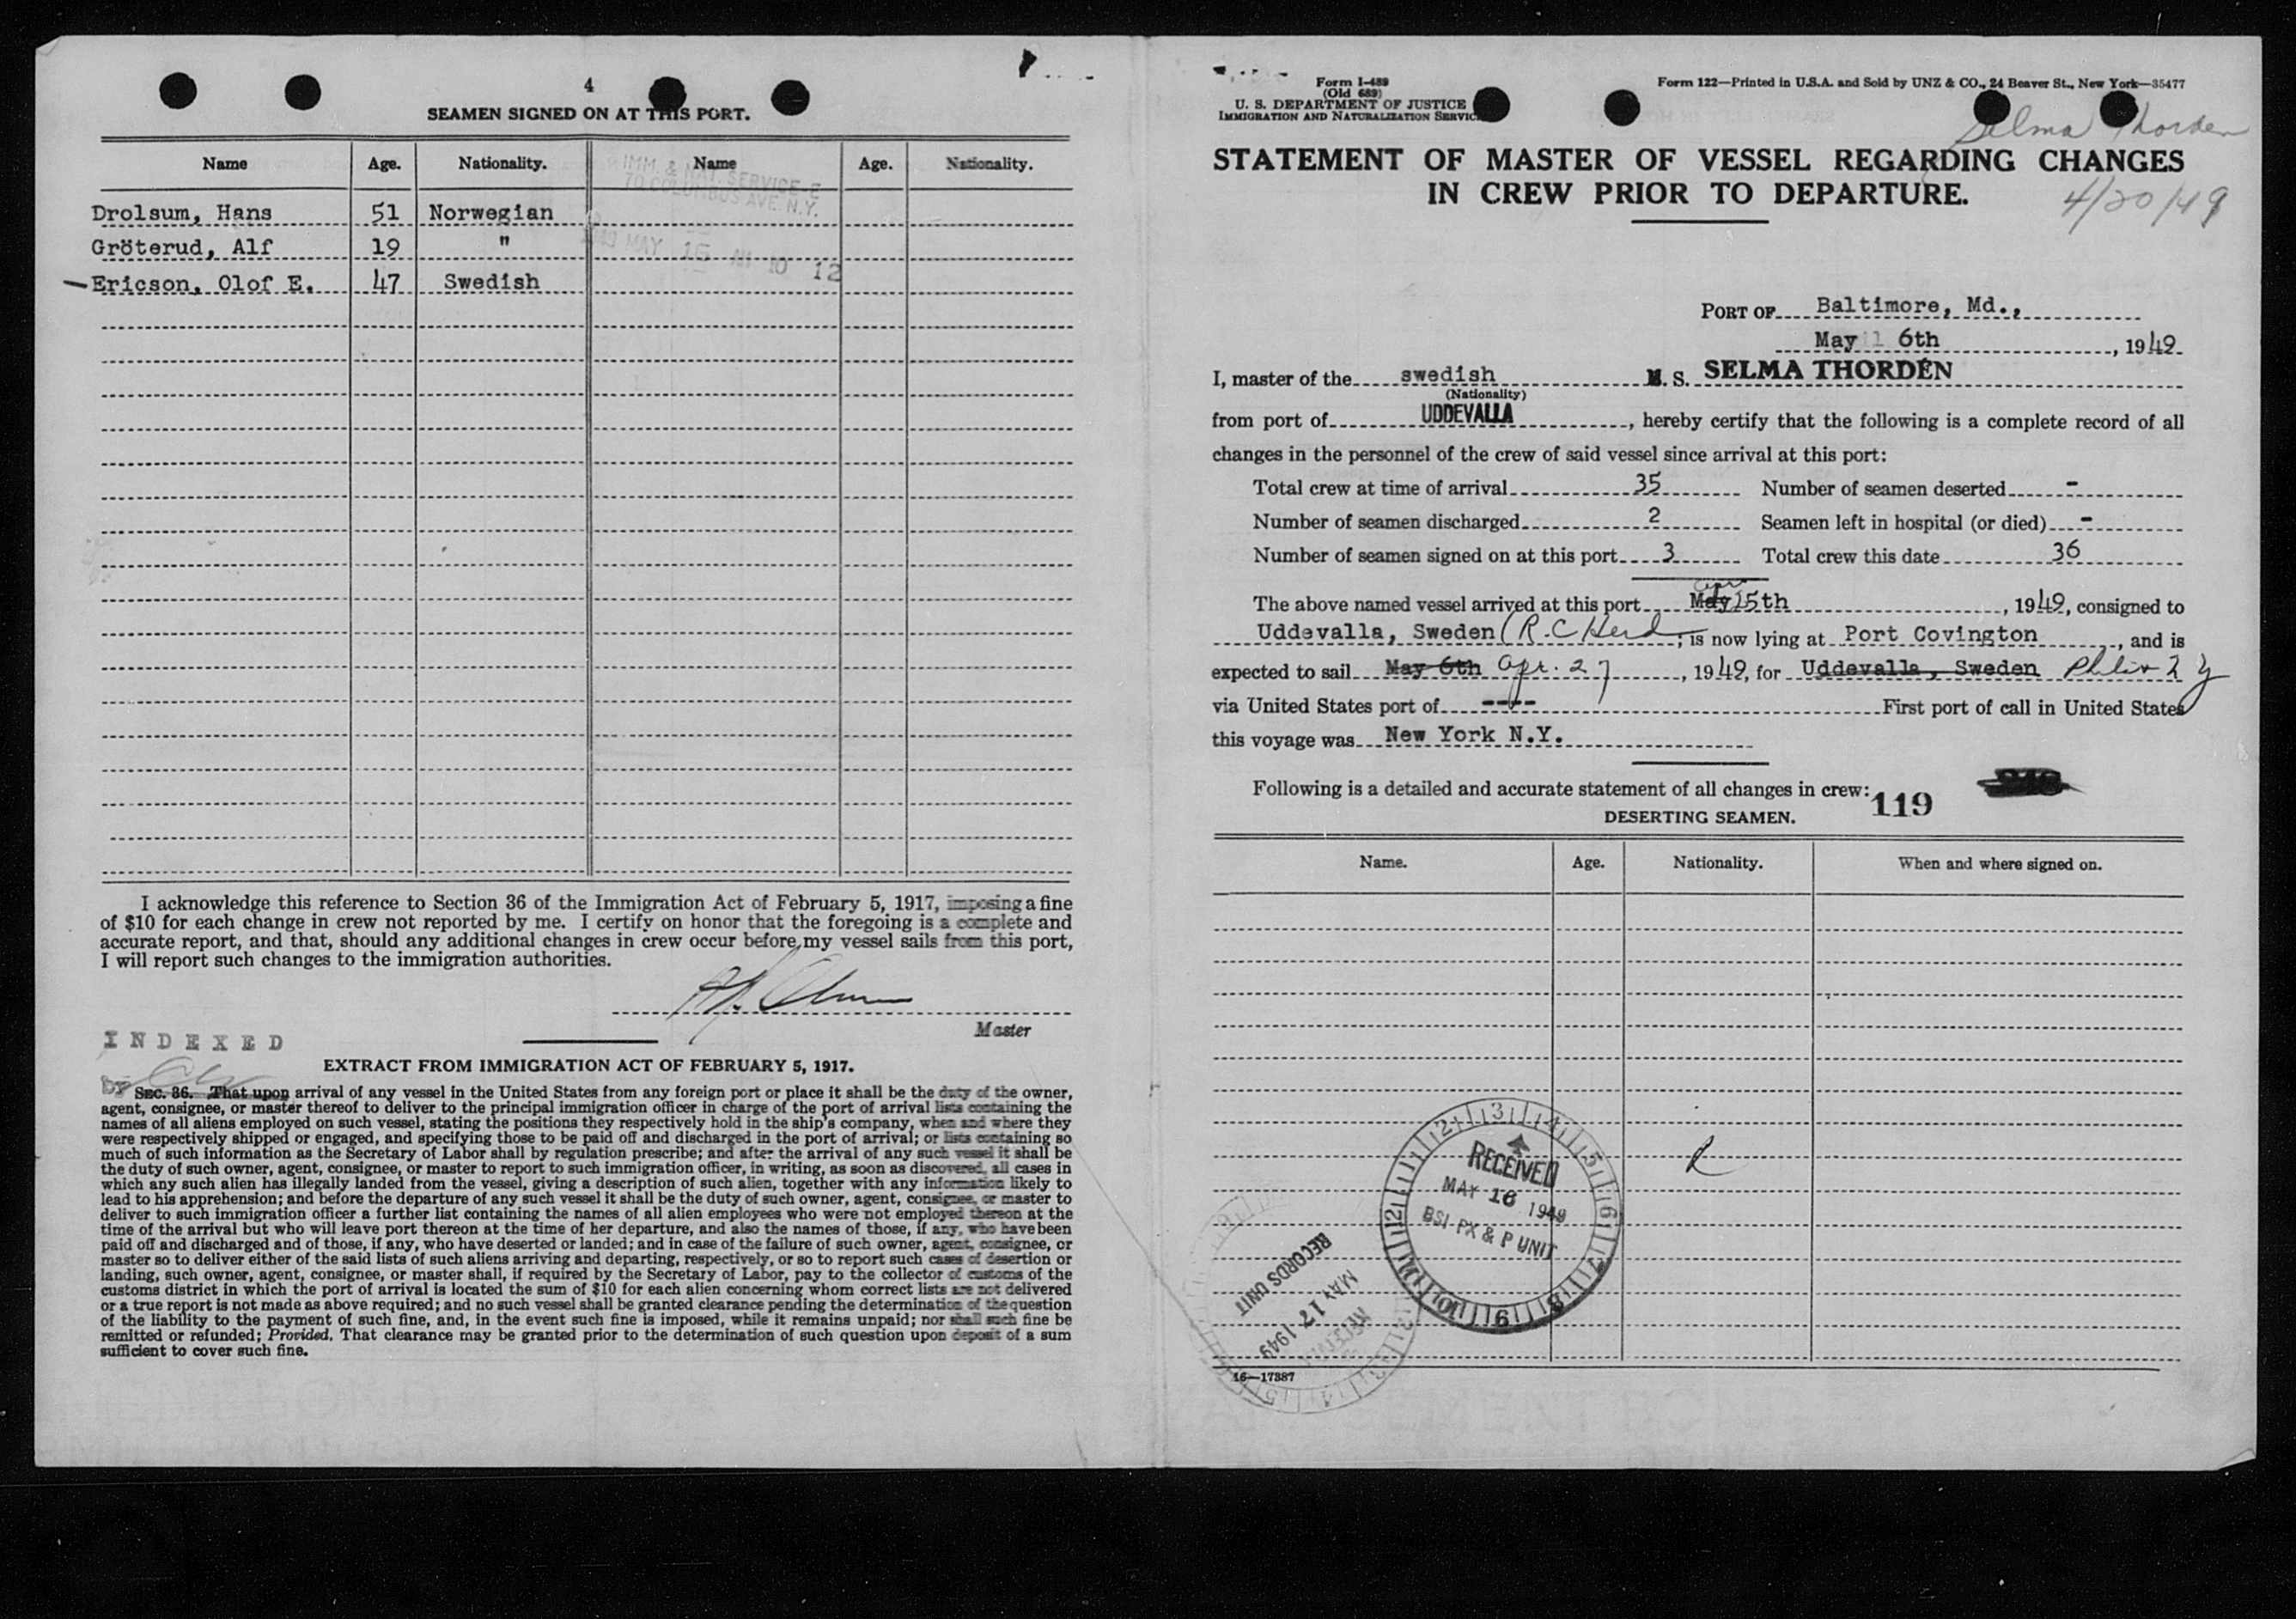 4
SEAMEN SIGNED ON AT THIS PORT.
Name Age. Nationality. Name Age. Nationality.
IMM. & NAT. SERVICE-E
70 COLUMBUS AVE. N.Y.
Drolsum, Hans 51 Norwegian
Gröterud, Alf 19 "
MAY 16 AM 10 12
Ericson, Olof E. 47 Swedish
I acknowledge this reference to Section 36 of the Immigration Act of February 5, 1917, imposing a fine
of $10 for each change in crew not reported by me. I certify on honor that the foregoing is a complete and
accurate report, and that, should any additional changes in crew occur before my vessel sails from this port,
I will report such changes to the immigration authorities.
Master
INDEXED
EXTRACT FROM IMMIGRATION ACT OF FEBRUARY 5, 1917.
BY
SEC. 36. That upon arrival of any vessel in the United States from any foreign port or place it shall be the duty of the owner,
agent, consignee, or master thereof to deliver to the principal immigration officer in charge of the port of arrival lists containing the
names of all aliens employed on such vessel, stating the positions they respectively hold in the ship's company, when and where they
were respectively shipped or engaged, and specifying those to be paid off and discharged in the port of arrival; or lists containing so
much of such information as the Secretary of Labor shall by regulation prescribe; and after the arrival of any such vessel it shall be
the duty of such owner, agent, consignee, or master to report to such immigration officer, in writing, as soon as discovered, all cases in
which any such alien has illegally landed from the vessel, giving a description of such alien, together with any information likely to
lead to his apprehension; and before the departure of any such vessel it shall be the duty of such owner, agent, consignee, or master to
deliver to such immigration officer a further list containing the names of all alien employees who were not employed thereon at the
time of the arrival but who will leave port thereon at the time of her departure, and also the names of those, if any, who have been
paid off and discharged and of those, if any, who have deserted or landed; and in case of the failure of such owner, agent, consignee, or
master so to deliver either of the said lists of such aliens arriving and departing, respectively, or so to report such cases of desertion or
landing, such owner, agent, consignee, or master shall, if required by the Secretary of Labor, pay to the collector of customs of the
customs district in which the port of arrival is located the sum of $10 for each alien concerning whom correct lists are not delivered
or a true report is not made as above required; and no such vessel shall be granted clearance pending the determination of the question
of the liability to the payment of such fine, and, in the event such fine is imposed, while it remains unpaid; nor shall such fine be
remitted or refunded; Provided, That clearance may be granted prior to the determination of such question upon deposit of a sum
sufficient to cover such fine.
Form I-489
(Old 689)
U. S. DEPARTMENT OF JUSTICE
IMMIGRATION AND NATURALIZATION SERVICE
Form 122—Printed in U.S.A. and Sold by UNZ & CO., 24 Beaver St., New York—35477
Selma Thorden
STATEMENT OF MASTER OF VESSEL REGARDING CHANGES
IN CREW PRIOR TO DEPARTURE.
4/20/49
PORT OF Baltimore, Md.,
May 6th, 1949
I, master of the swedish M. S. SELMA THORDÉN
(Nationality)
from port of UDDEVALLA, hereby certify that the following is a complete record of all
changes in the personnel of the crew of said vessel since arrival at this port:
Total crew at time of arrival 35 Number of seamen deserted -
Number of seamen discharged 2 Seamen left in hospital (or died) -
Number of seamen signed on at this port 3 Total crew this date 36
The above named vessel arrived at this port May Apr 25th, 1949, consigned to
Uddevalla, Sweden (R.C Herd; is now lying at Port Covington, and is
expected to sail May 6th Apr. 27, 1949, for Uddevalla, Sweden
via United States port of ---- First port of call in United States
this voyage was New York N.Y.
Following is a detailed and accurate statement of all changes in crew:
119
DESERTING SEAMEN.
Name. Age. Nationality. When and where signed on.
R
RECEIVED
MAY 16 1949
BSI-PX & P UNIT
RECORDS UNIT
MAY 17 1949
16—17887